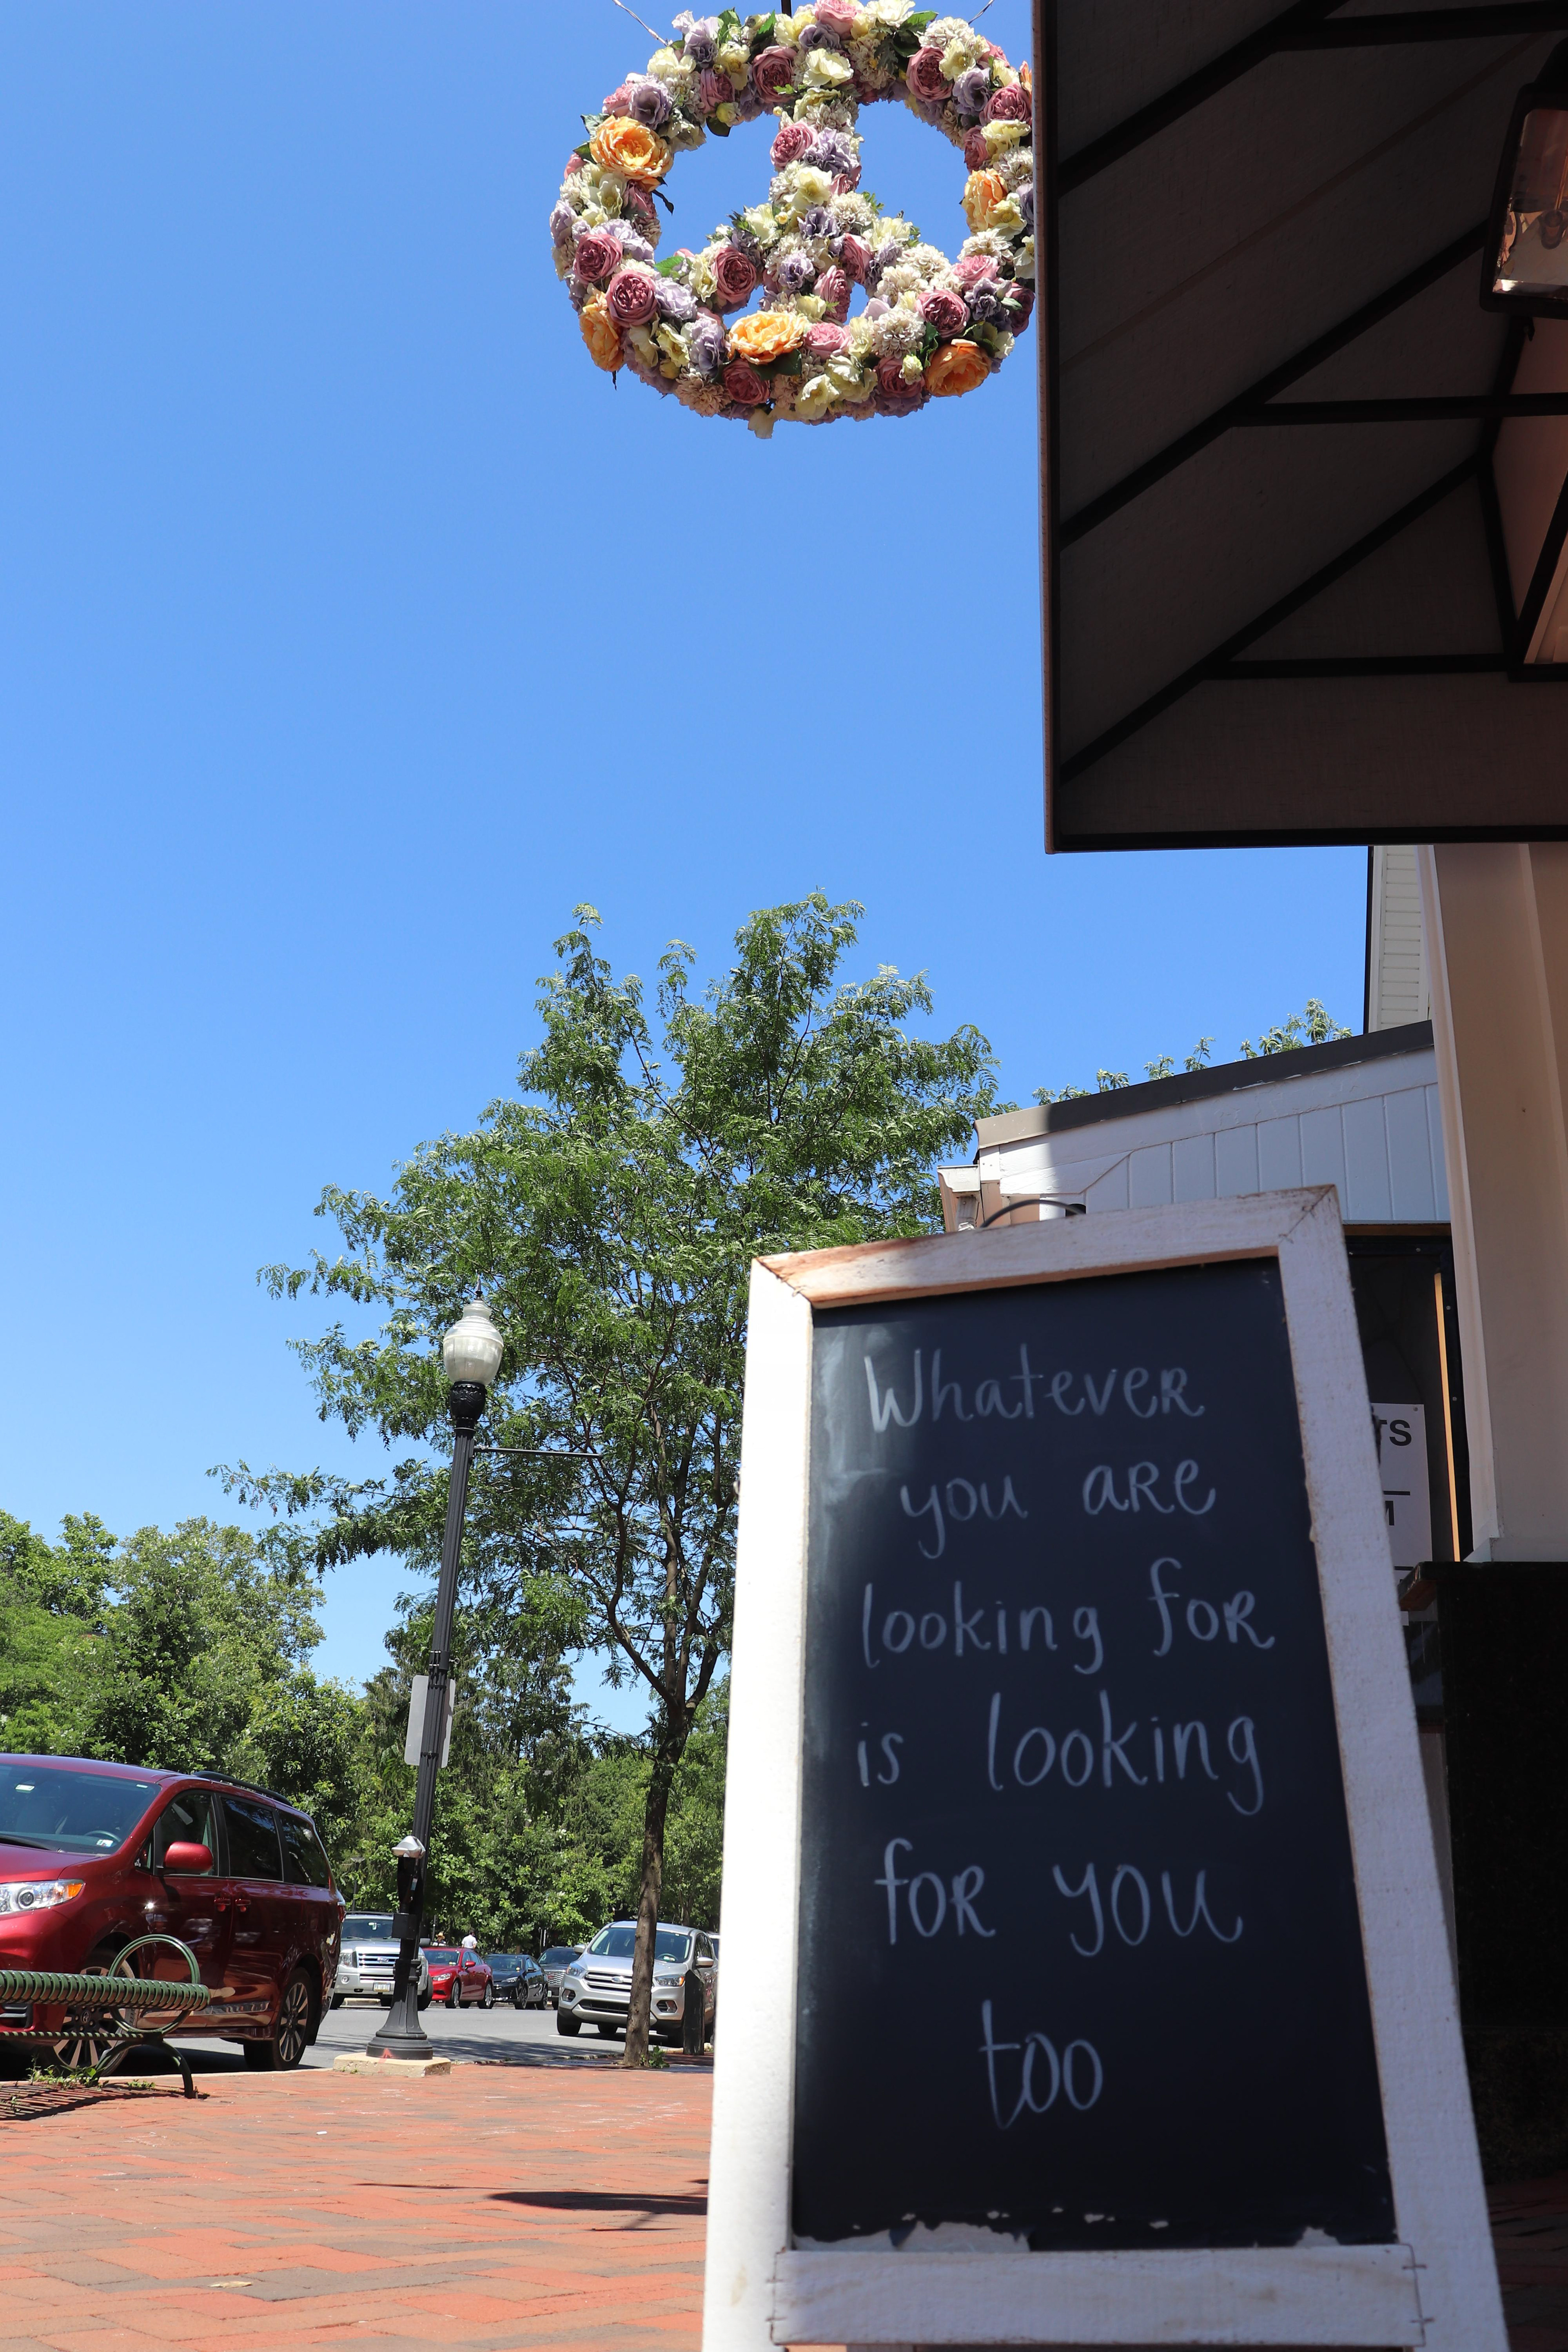 Whatever
you are
looking for
is looking
for you
too
TS